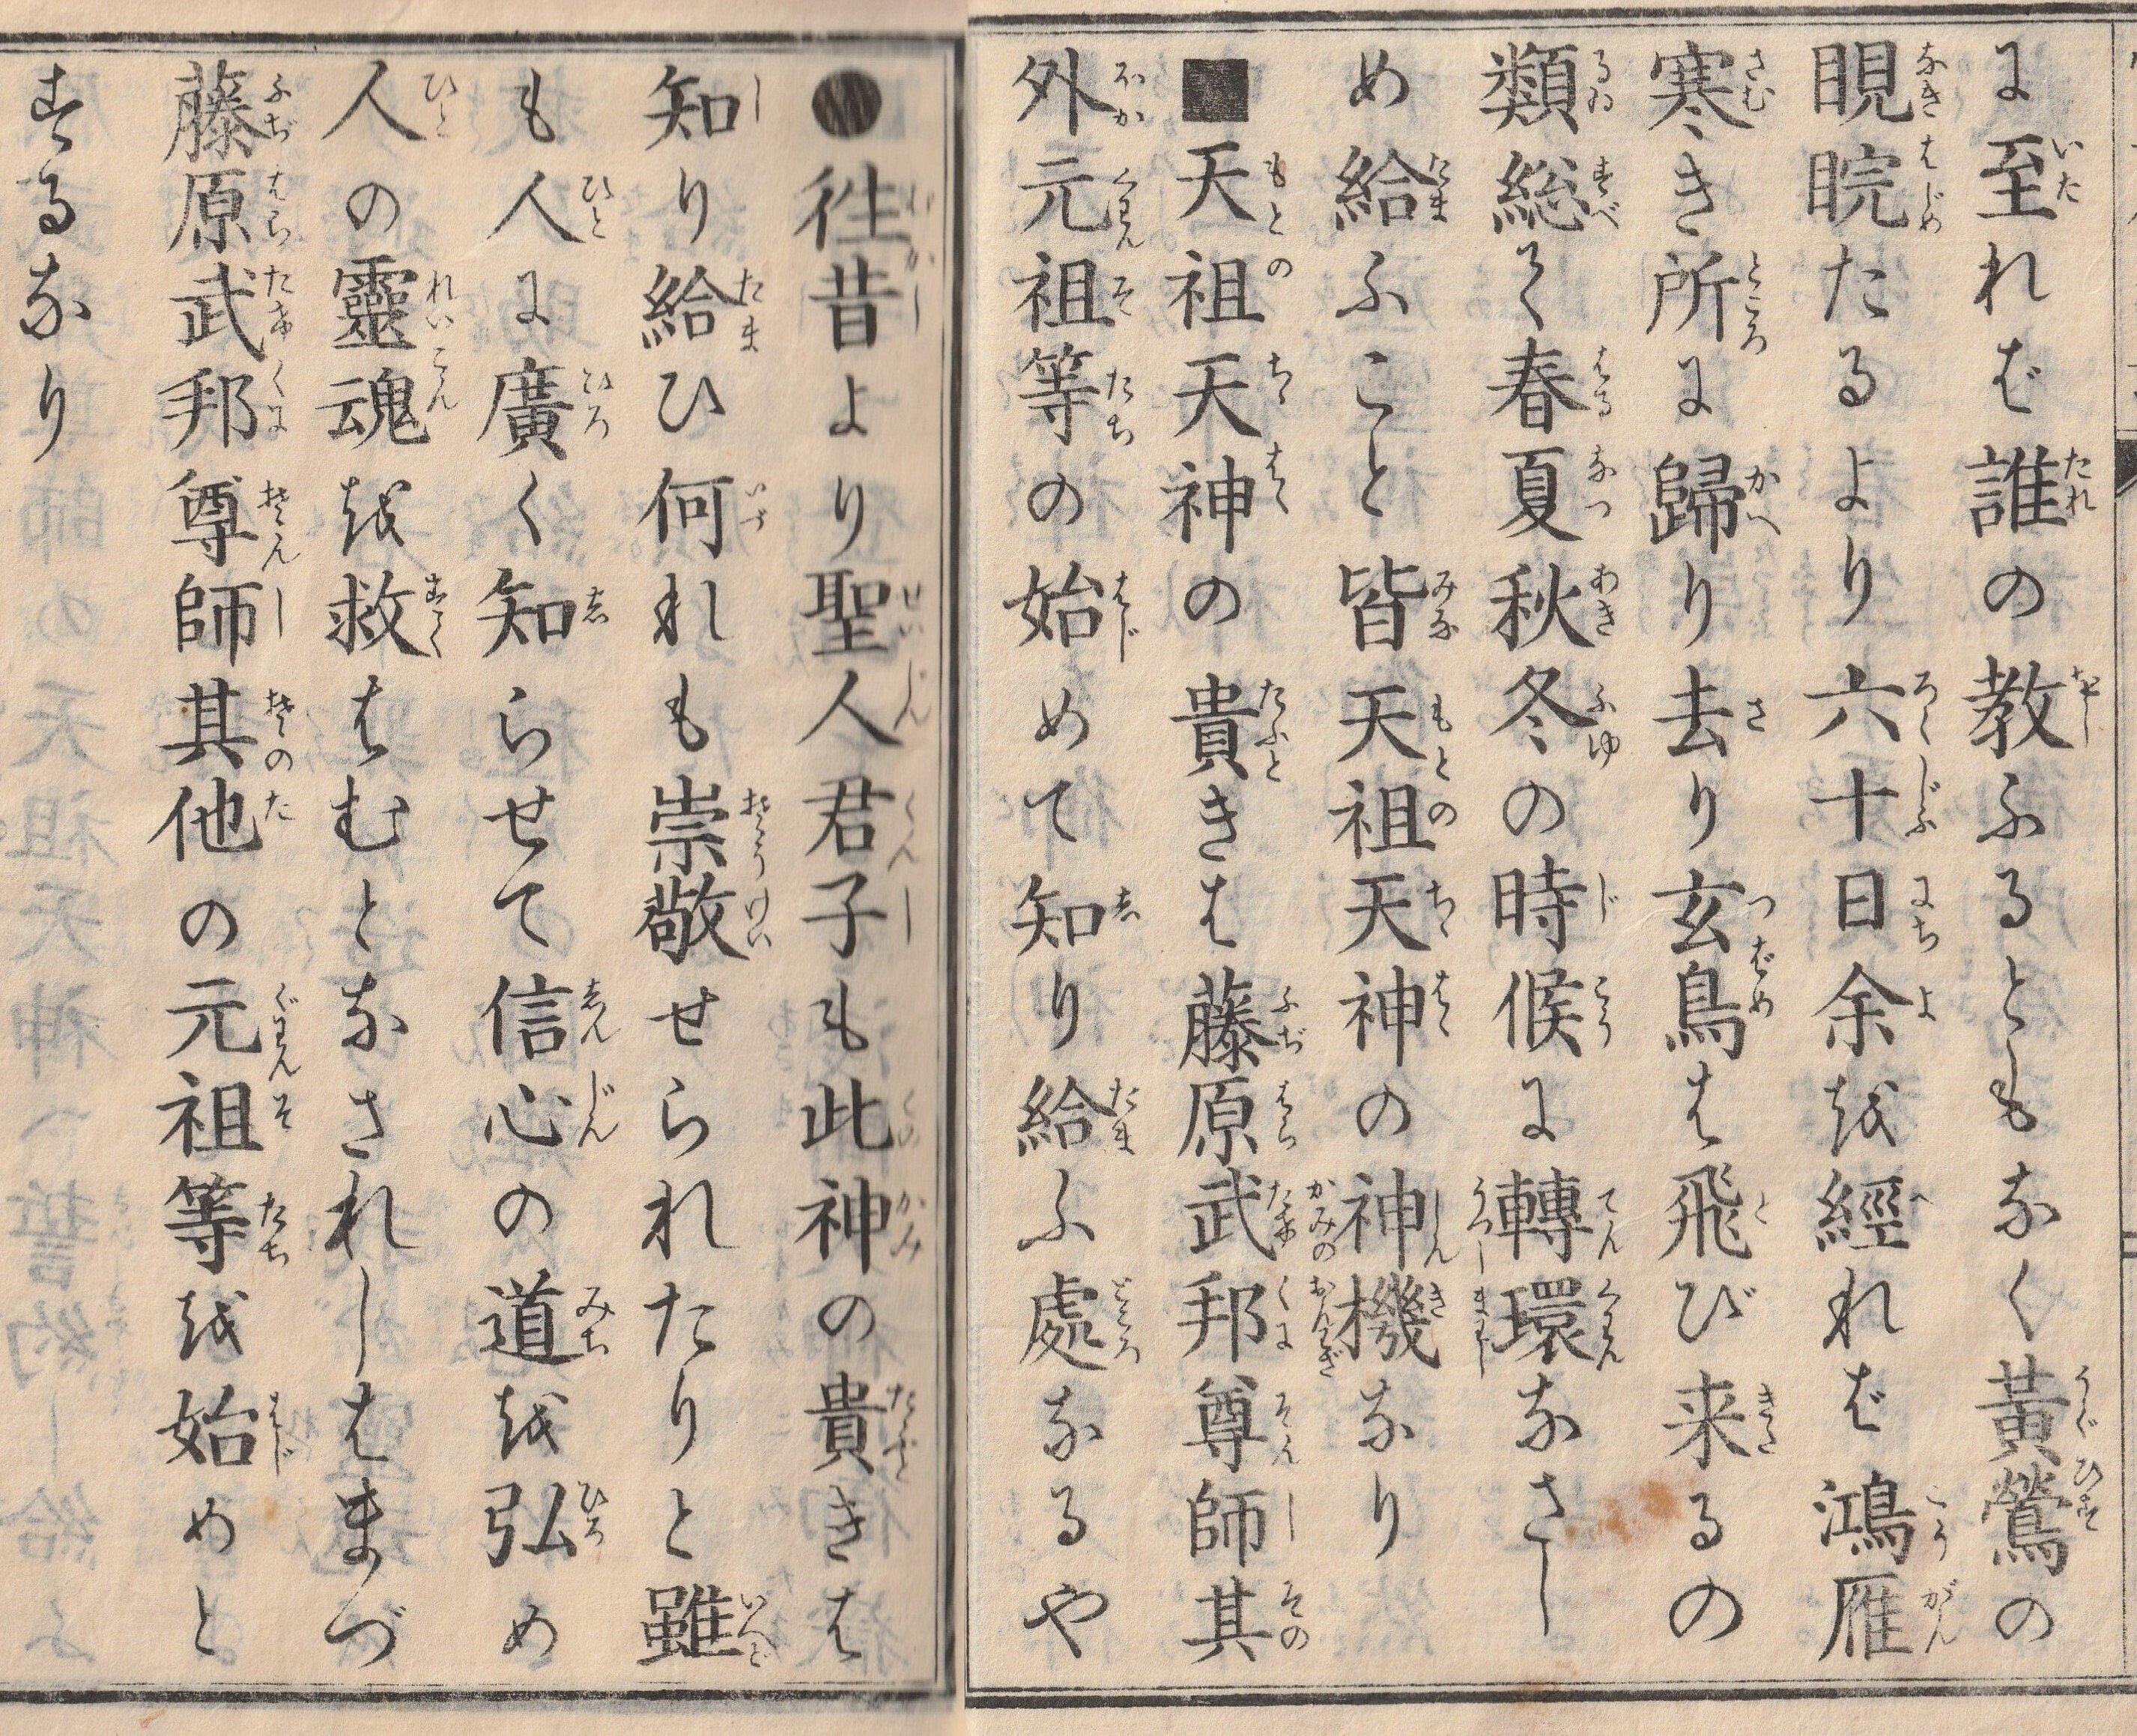 に至れば誰の教ふるともなく黄鶯の
睍睆たるより六十日余を經れば鴻雁
寒き所に歸り去り玄鳥は飛び来るの
類総て春夏秋冬の時候に轉環なさし
め給ふこと皆天祖天神の神機なり
■天祖天神の貴きは藤原武邦尊師其
外元祖等の始めて知り給ふ處なるや
●徃昔より聖人君子も此神の貴きは
知り給ひ何れも崇敬せられたりと雖
も人に廣く知らせて信心の道を弘め
人の靈魂を救はむとなされしはまづ
藤原武邦尊師其他の元祖等を始めと
するなり